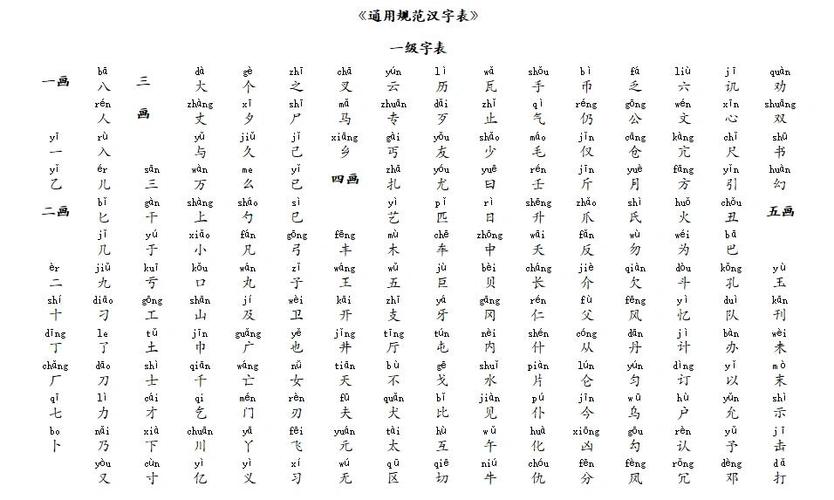 《通用规范汉字表》
一级字表
bā dà gè zhī chā yún lì wǎ shǒu bì fá liù jī quàn
一画 八 三 大 个 之 叉 云 历 瓦 手 币 乏 六 讥 劝
rén zhàng xī shī mǎ zhuān dǎi zhǐ qì réng gōng wén xīn shuāng
人 画 丈 夕 尸 马 专 歹 止 气 仍 公 文 心 双
yī rù yǔ jiǔ jǐ xiāng gài yǒu shǎo máo jǐn cāng kàng chǐ shū
一 入 与 久 己 乡 丐 友 少 毛 仅 仓 亢 尺 书
yǐ ér sān wàn me yǐ zhā yóu yuē rén jīn yuè fāng yǐn huàn
乙 儿 三 万 么 已 四画 扎 尤 曰 壬 斤 月 方 引 幻
bǐ gàn shàng sháo sì yì pǐ rì shēng zhǎo shì huǒ chǒu
二画 匕 干 上 勺 巳 艺 匹 日 升 爪 氏 火 丑 五画
jǐ yú xiǎo fán gōng fēng mù chē zhōng fǎn wù wéi bā
几 于 小 凡 弓 丰 木 车 中 夭 反 勿 为 巴
èr jiǔ kuī kǒu wán zǐ wáng wǔ jù bèi cháng jiè qiàn dòu kǒng yù
二 九 亏 口 丸 子 王 五 巨 贝 长 介 欠 斗 孔 玉
shí diāo gōng shān jí wèi kāi zhī yá gāng rén fù fēng yì duì kān
十 刁 工 山 及 卫 开 支 牙 冈 仁 父 风 忆 队 刊
dīng le tǔ jīn guǎng yě jǐng tīng tún nèi shén cóng dān jì bàn wèi
丁 了 土 巾 广 也 井 厅 屯 内 什 从 丹 计 办 未
chǎng dāo shì qiān wáng nǚ tiān bù gē shuǐ piàn lún yún dìng yǐ mò
厂 刀 士 千 亡 女 天 不 戈 水 片 仑 匀 订 以 末
qī lì cái qǐ mén rèn fū quǎn bǐ jiàn pú jīn wū hù yǔn shì
七 力 才 乞 门 刃 夫 犬 比 见 仆 今 乌 户 允 示
bo nǎi xià chuān yā fēi yuán tài hù wǔ huà xiōng gōu rèn yǔ jī
卜 乃 下 川 丫 飞 元 太 互 午 化 凶 勾 认 予 击
yòu cùn yì yì xí wú qū qiē niú chóu fēn fēng rǒng dèng dǎ
又 寸 亿 义 习 无 区 切 牛 仇 分 风 冗 邓 打